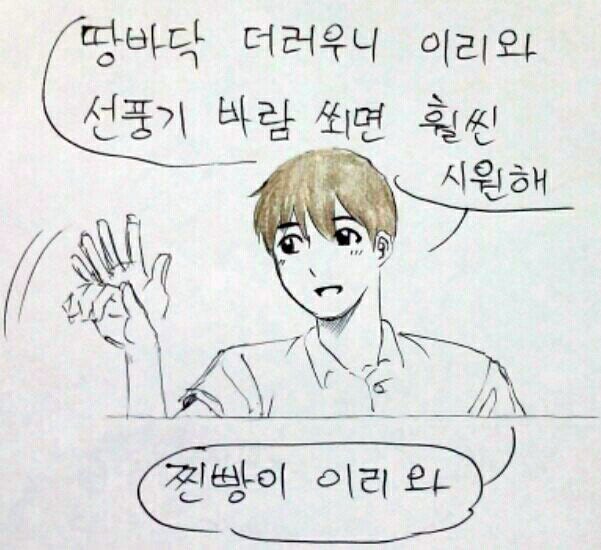 땅바닥 더러우니 이리와
선풍기 바람 쐬면 훨씬
시원해
찐빵이 이리와